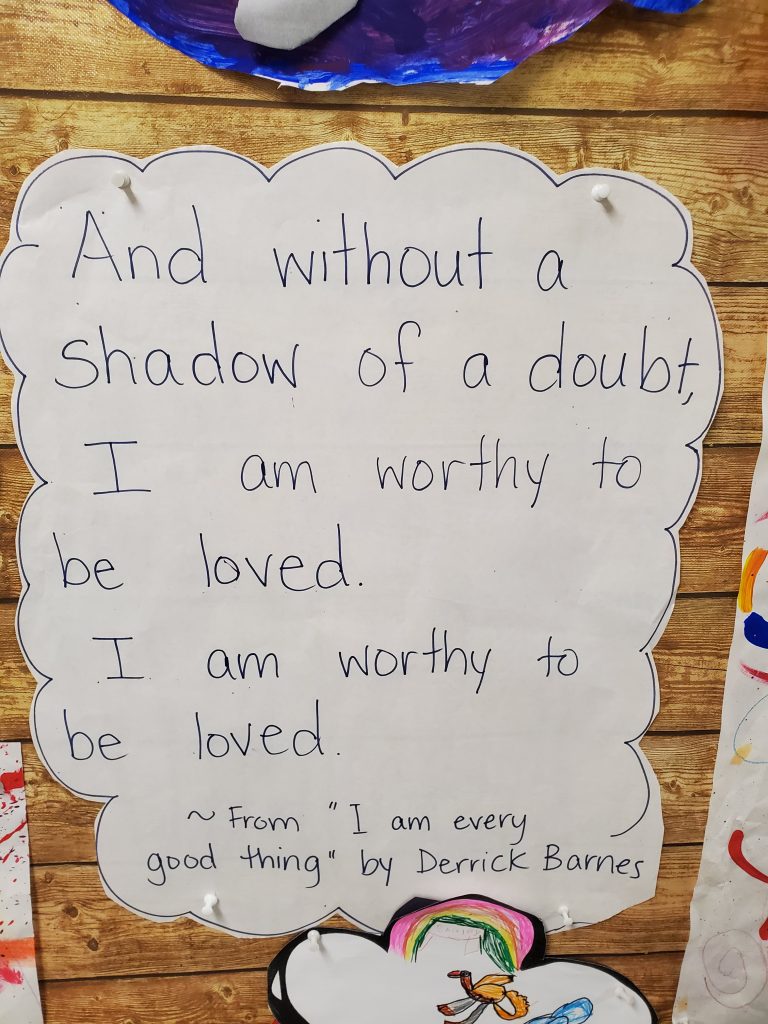 And without a
shadow of a doubt,
I am worthy to
be loved.
I am worthy to
be loved.
~ From "I am every
good thing" by Derrick Barnes